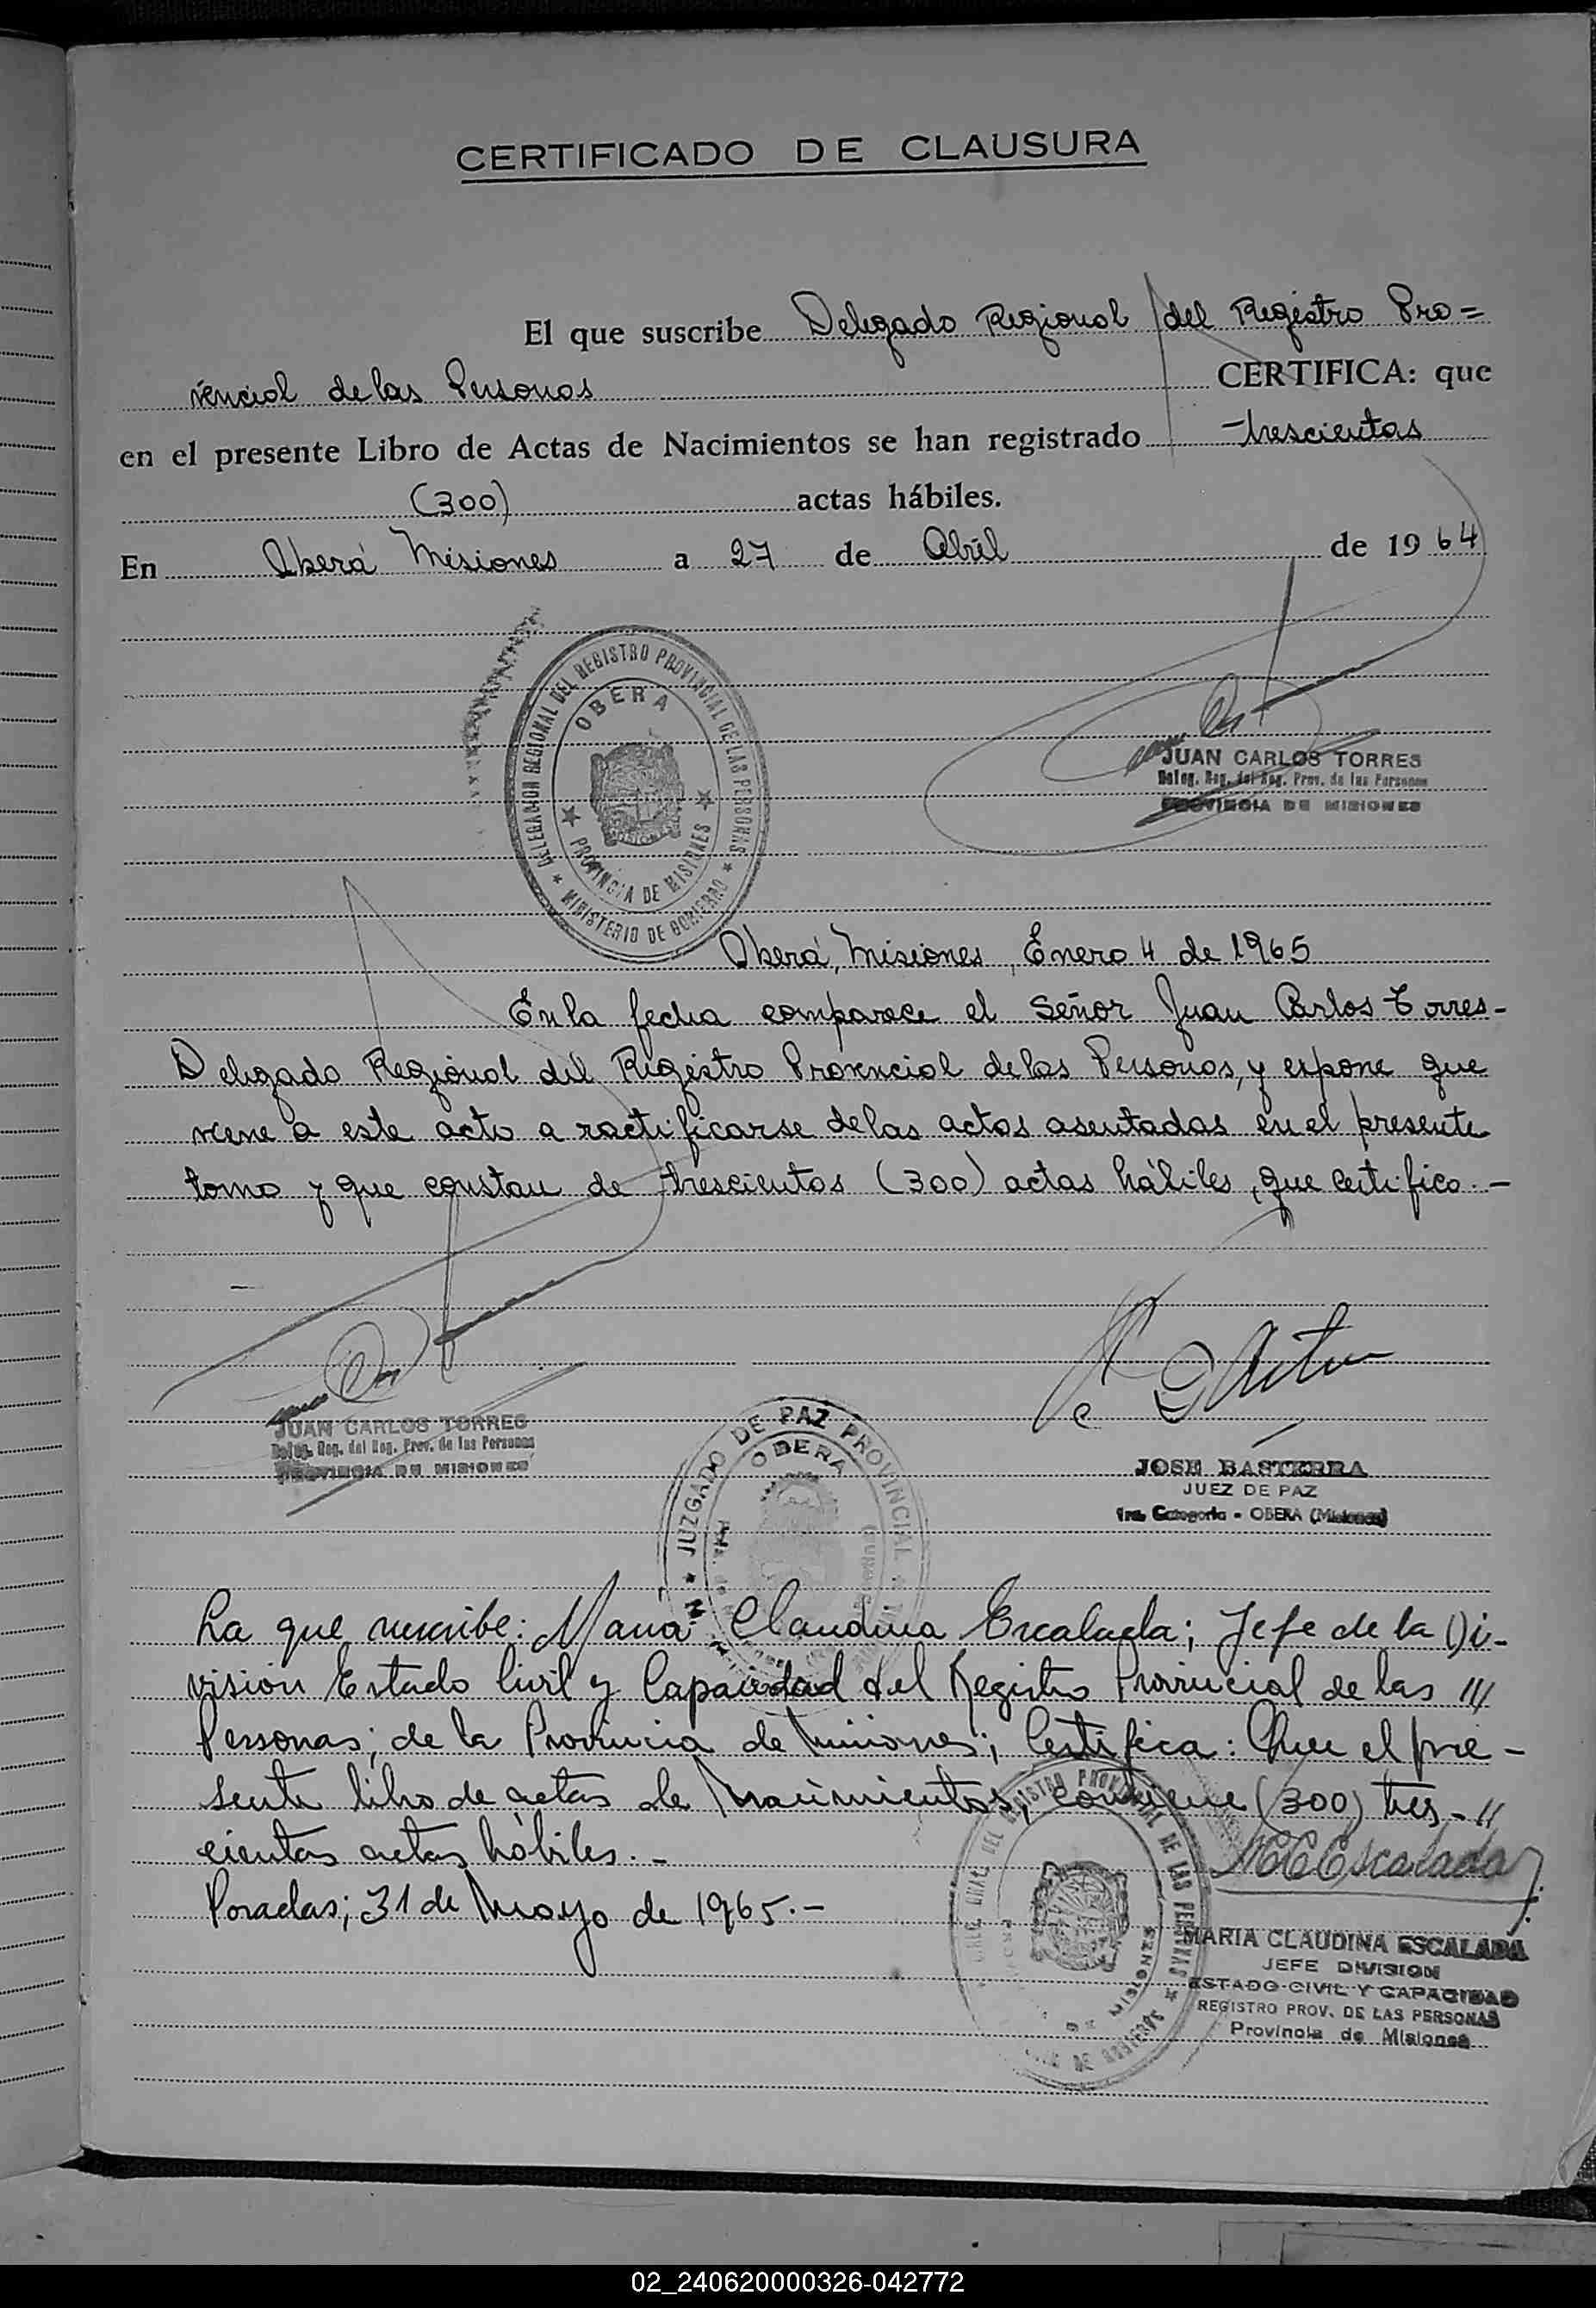 CERTIFICADO DE CLAUSURA
El que suscribe Delegado Regional del Registro Pro=
vincial de las Personas CERTIFICA: que
en el presente Libro de Actas de Nacimientos se han registrado trescientas
(300) actas hábiles.
En Oberá Misiones a 27 de Abril de 1964
DELEGACION REGIONAL DEL REGISTRO PROVINCIAL DE LAS PERSONAS
OBERA
PROVINCIA DE MISIONES
MINISTERIO DE GOBIERNO
JUAN CARLOS TORRES
Deleg. Reg. del Reg. Prov. de las Personas
PROVINCIA DE MISIONES
Oberá, Misiones, Enero 4 de 1965
En la fecha comparece el Señor Juan Carlos Torres-
Delegado Regional del Registro Provincial de las Personas, y expone que
viene a este acto a ractificarse de las actas asentadas en el presente
tomo y que constan de trescientas (300) actas hábiles, que certifico.-
JUAN CARLOS TORRES
Deleg. Reg. del Reg. Prov. de las Personas
PROVINCIA DE MISIONES
JUZGADO DE PAZ PROVINCIAL
OBERA
JOSE BASTERRA
JUEZ DE PAZ
1ra. Categoria - OBERA (Misiones)
La que suscribe: María Claudina Escalada; Jefe de la Di-
visión Estado Civil y Capacidad del Registro Provincial de las ///
Personas; de la Provincia de Misiones; Certifica: Que el pre-
sente libro de actas de Nacimientos, contiene (300) tres-//
cientas actas hábiles.-
Posadas; 31 de Mayo de 1965.-
MCEscalada
DEL REGISTRO PROVINCIAL DE LAS PERSONAS
MISIONES
MARIA CLAUDINA ESCALADA
JEFE DIVISION
ESTADO CIVIL Y CAPACIDAD
REGISTRO PROV. DE LAS PERSONAS
Provincia de Misiones
02_240620000326-042772